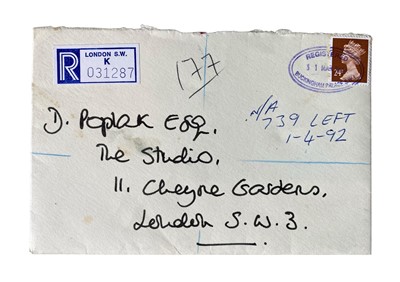 LONDON S.W.
K
R 031287
177
REGIST
31 MAR
BUCKINGHAM PALACE
24
N/A
739 LEFT
1-4-92
D. Poplak Esq.
The Studio,
11. Cheyne Gardens,
London S.W.3.